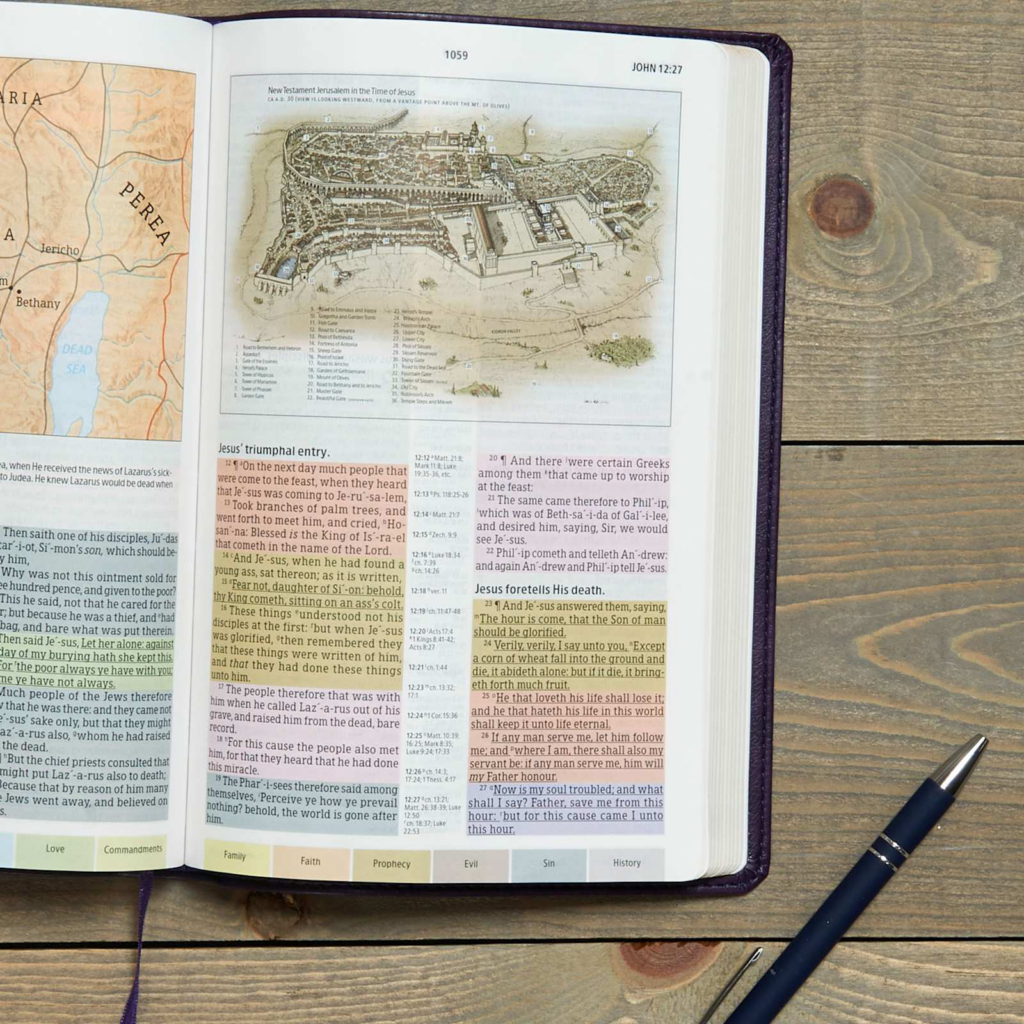 ARIA
PEREA
A
Jericho
m
Bethany
DEAD
SEA
a, when He received the news of Lazarus's sick-
to Judea. He knew Lazarus would be dead when
Then saith one of his disciples, Ju´-das
car´-i-ot, Si´-mon's son, which should be-
y him,
Why was not this ointment sold for
ee hundred pence, and given to the poor?
This he said, not that he cared for the
r; but because he was a thief, and had
bag, and bare what was put therein.
Then said Je´-sus, Let her alone: against
day of my burying hath she kept this.
For the poor always ye have with you;
me ye have not always.
Much people of the Jews therefore
v that he was there: and they came not
e´-sus' sake only, but that they might
az´-a-rus also, whom he had raised
the dead.
But the chief priests consulted that
might put Laz´-a-rus also to death;
Because that by reason of him many
e Jews went away, and believed on
s.
Love
Commandments
1059
JOHN 12:27
New Testament Jerusalem in the Time of Jesus
(A.D. 30 (VIEW IS LOOKING WESTWARD, FROM A VANTAGE POINT ABOVE THE MT. OF OLIVES)
KIDRON VALLEY
Jesus' triumphal entry.
12 ¶ On the next day much people that
were come to the feast, when they heard
that Je´-sus was coming to Je-ru´-sa-lem,
13 Took branches of palm trees, and
went forth to meet him, and cried, Ho-
san´-na: Blessed is the King of Is´-ra-el
that cometh in the name of the Lord.
14 And Je´-sus, when he had found a
young ass, sat thereon; as it is written,
15 Fear not, daughter of Si´-on: behold,
thy King cometh, sitting on an ass's colt.
16 These things understood not his
disciples at the first: but when Je´-sus
was glorified, then remembered they
that these things were written of him,
and that they had done these things
unto him.
17 The people therefore that was with
him when he called Laz´-a-rus out of his
grave, and raised him from the dead, bare
record.
18 For this cause the people also met
him, for that they heard that he had done
this miracle.
19 The Phar´-i-sees therefore said among
themselves, Perceive ye how ye prevail
nothing? behold, the world is gone after
him.
12:12 Matt. 21:8;
Mark 11:8; Luke
19:35-36, etc.
12:13 Ps. 118:25-26
12:14 Matt. 21:7
12:15 Zech. 9:9
12:16 Luke 18:34
ch. 7:39
ch. 14:26
12:18 ver. 11
12:19 ch. 11:47-48
12:20 Acts 17:4
1 Kings 8:41-42;
Acts 8:27
12:21 ch. 1:44
12:23 ch. 13:32;
17:1
12:24 1 Cor. 15:36
12:25 Matt. 10:39;
16:25; Mark 8:35;
Luke 9:24; 17:33
12:26 ch. 14:3;
17:24; 1 Thess. 4:17
12:27 ch. 13:21;
Matt. 26:38-39; Luke
12:50
ch. 18:37; Luke
22:53
20 ¶ And there were certain Greeks
among them that came up to worship
at the feast:
21 The same came therefore to Phil´-ip,
which was of Beth-sa´-i-da of Gal´-i-lee,
and desired him, saying, Sir, we would
see Je´-sus.
22 Phil´-ip cometh and telleth An´-drew:
and again An´-drew and Phil´-ip tell Je´-sus.
Jesus foretells His death.
23 ¶ And Je´-sus answered them, saying,
The hour is come, that the Son of man
should be glorified.
24 Verily, verily, I say unto you, Except
a corn of wheat fall into the ground and
die, it abideth alone: but if it die, it bring-
eth forth much fruit.
25 He that loveth his life shall lose it;
and he that hateth his life in this world
shall keep it unto life eternal.
26 If any man serve me, let him follow
me; and where I am, there shall also my
servant be: if any man serve me, him will
my Father honour.
27 Now is my soul troubled; and what
shall I say? Father, save me from this
hour: but for this cause came I unto
this hour.
Family
Faith
Prophecy
Evil
Sin
History